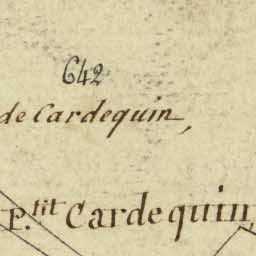 642
de Cardequin,
P.tit Cardequin,